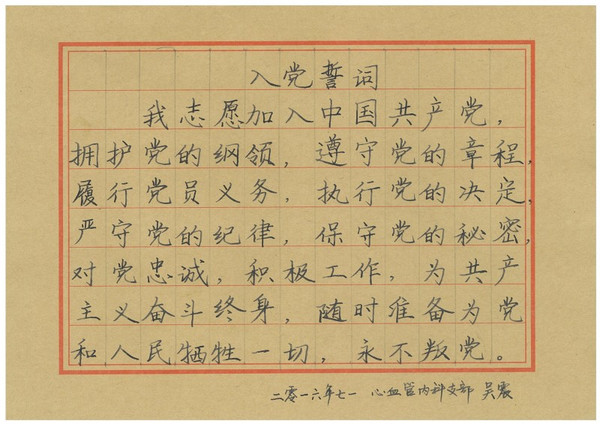 入党誓词
我志愿加入中国共产党，
拥护党的纲领，遵守党的章程，
履行党员义务，执行党的决定，
严守党的纪律，保守党的秘密，
对党忠诚，积极工作，为共产
主义奋斗终身，随时准备为党
和人民牺牲一切，永不叛党。
二零一六年七一 心血管内科支部 吴震